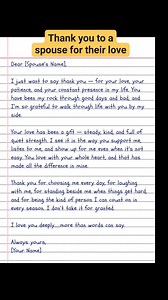 Thank you to a
spouse for their love
Dear [Spouse's Name],
I just want to say thank you — for your love, your
patience, and your constant presence in my life. You
have been my rock through good days and bad, and
I'm so grateful to walk through life with you by my
side.
Your love has been a gift — steady, kind, and full
of quiet strength. I see it in the way you support me,
listen to me, and show up for me even when it's not
easy. You love with your whole heart, and that has
made all the difference in mine.
Thank you for choosing me every day, for laughing
with me, for standing beside me when things get
hard, and for being the kind of person I can count on
in every season. I don't take it for granted.
I love you deeply...more than words can say.
Always yours,
[Your Name]